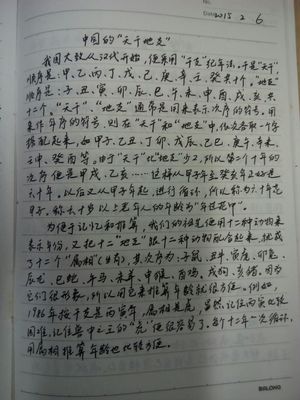 2015 2 6
中国的“天干地支”
我国大致从汉代开始，便采用“干支”纪年法。干是“天干”，
顺序是：甲、乙、丙、丁、戊、己、庚、辛、壬、癸共10个。“地支”
顺序是：子、丑、寅、卯、辰、巳、午、未、申、酉、戌、亥共
十二个。“天干”、“地支”通常是用来表示次序的符号。用
来作年序的符号，则在“天干”和“地支”中，依次各取一个字
搭配起来，如甲子、乙丑、丁卯、戊辰、己巳、庚午、辛未、
壬申、癸酉等。由于“天干”比“地支”少2，所以第二个十年的
次序便是甲戌、乙亥……这样从甲子年至癸亥年正好是
六十年，以后又从甲子年起，进行循环，所以称为六十花
甲子。称六十岁以上老年人的年龄为“年过花甲”。
为便于记忆和推算，我们的祖先便用十二种动物来
表示年份，又把十二“地支”跟十二种动物配合起来，就成
了十二个“属相”（生肖），其次序为：子鼠、丑牛、寅虎、卯兔、
辰龙、巳蛇、午马、未羊、申猴、酉鸡、戌狗、亥猪。因为
它们很形象，所以用它来推算年龄就很方便。例如，
1986年按干支是丙寅年，属相是虎，虽然记住丙寅比较
困难，记住兽中之王的“虎”便很容易了。每十二年一次循环，
用属相推算年龄也比较方便。